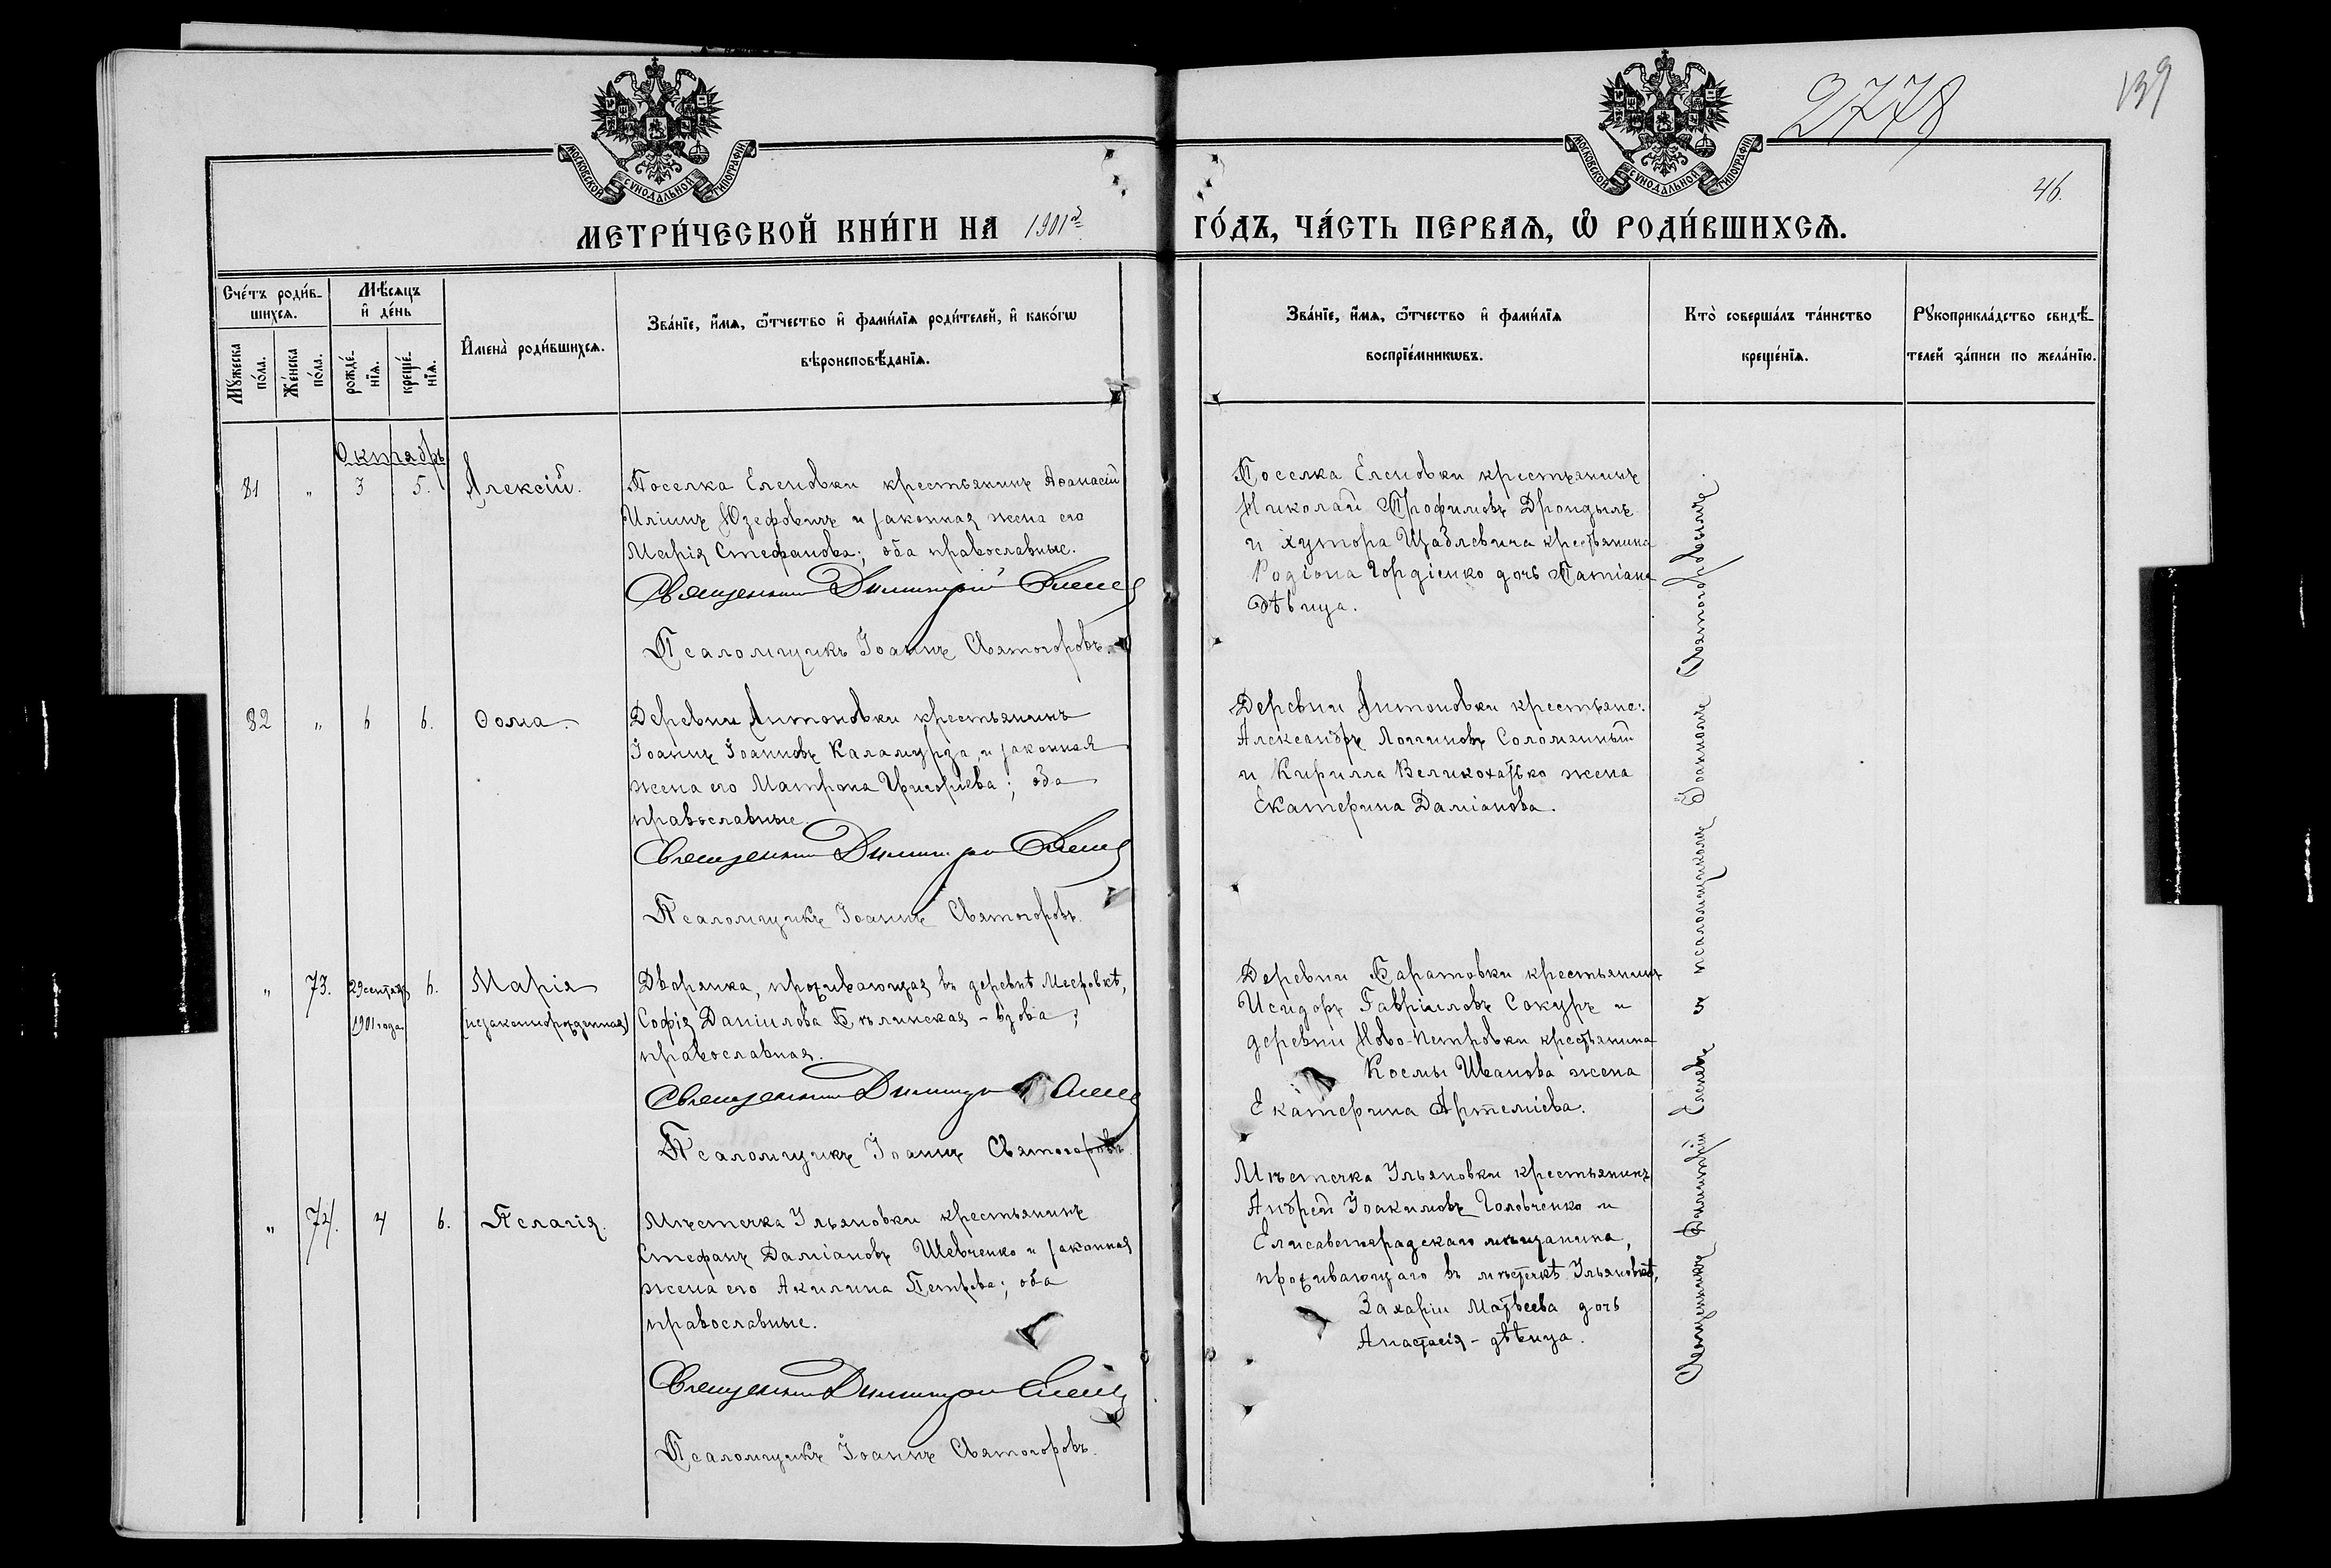 2778
139
46.
МОСКОВСКОЙ СѴНОДАЛЬНОЙ ТИПОГРАФІИ
МОСКОВСКОЙ СѴНОДАЛЬНОЙ ТИПОГРАФІИ
МЕТРИ́ЧЕСКОЙ КНИ́ГИ НА 1901й
ГО́ДЪ, ЧА́СТЬ ПЕРВАѦ, Ѽ РОДИ́ВШИХСѦ.
Сче́тъ роди́в-
шихсѧ.
Мꙋ́жеска по́ла.
Же́нска по́ла.
Мѣ́сѧцъ
и҆ де́нь
рожде́-
нїѧ.
креще́-
нїѧ.
И҆мена̀ роди́вшихсѧ.
Зва́нїе, и҆́мѧ, ѻ҆́тчество и҆ фами́лїѧ роди́телей, и҆ како́гѡ
вѣроисповѣ́данїѧ.
Зва́нїе, и҆́мѧ, ѻ҆́тчество и҆ фами́лїѧ
воспрїе́мникѡвъ.
Кто̀ соверша́лъ та́инство
креще́нїѧ.
Рꙋкоприкла́дство свидѣ́-
телей за́писи по жела́нїю.
Октябрь
81 „ 3 5. Алексій.
Поселка Еленовки крестьянинъ Аѳанасій
Иліинъ Юзефовичъ и законная жена его
Марія Стефанова; оба православные.
Священникъ Димитрій
Псаломщикъ Іоаннъ Святогоровъ.
Поселка Еленовки крестьянинъ
Николай Трофимовъ Дрондыль
и хутора Щаблевича крестьянина
Родіона Гордіенко дочь Татіана
дѣвица.
82 „ 6 6. Ѳома.
Деревни Антоновки крестьянинъ
Іоаннъ Іоанновъ Каламурза, и законная
жена его Матрона Григоріева; оба
православные.
Священникъ Димитрій
Псаломщикъ Іоаннъ Святогоровъ.
Деревни Антоновки крестьяне:
Александръ Логгиновъ Соломяный
и Кирилла Великохатько жена
Екатерина Даміанова.
„ 73. 29 сентяб. 6. Марія
1901 года (незаконнорожденная)
Дворянка, проживающая въ деревнѣ Месровкѣ,
Софія Даніилова Бѣлинская - вдова;
православная.
Священникъ Димитрій
Псаломщикъ Іоаннъ Святогоровъ.
Деревни Баратовки крестьянинъ
Исидоръ Гавріиловъ Сокуръ и
деревни Ново-Петровки крестьянина
Космы Иванова жена
Екатерина Артеміева.
„ 74. 4 6. Пелагія.
Мѣстечка Ульяновки крестьянинъ
Стефанъ Даміановъ Шевченко и законная
жена его Акилина Петрова; оба
православные.
Священникъ Димитрій
Псаломщикъ Іоаннъ Святогоровъ.
Мѣстечка Ульяновки крестьянинъ
Андрей Іоакимовъ Головченко и
Елисаветградскаго мѣщанина,
проживающаго въ мѣстечкѣ Ульяновкѣ,
Захаріи Матвеева дочь
Анастасія - дѣвица.
Священникъ Димитрій Еленевъ и псаломщикомъ Іоанномъ Святогоровымъ.